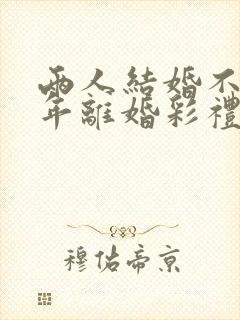 兩人結婚不
年離婚彩禮
穆佑帝京